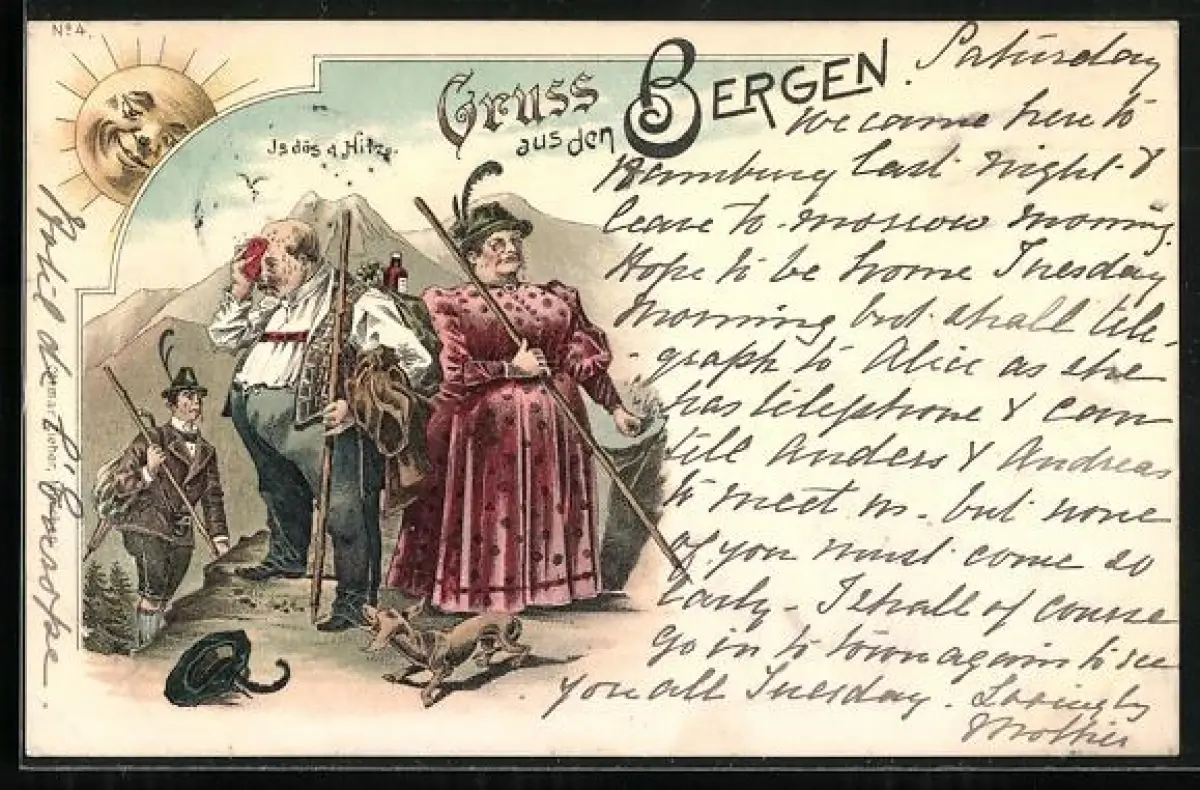 No 4.
Gruss
aus den
BERGEN
Is dös a Hitz.
Saturday
We came here to
Hamburg last night &
leave to-morrow morning.
Hope to be home Tuesday
morning but shall tele-
-graph to Alice as she
has telephone & can
tell Anders & Andreas
to meet us. but none
of you must come so
early - I shall of course
go in to town again to see
you all Tuesday. Lovingly
Mother